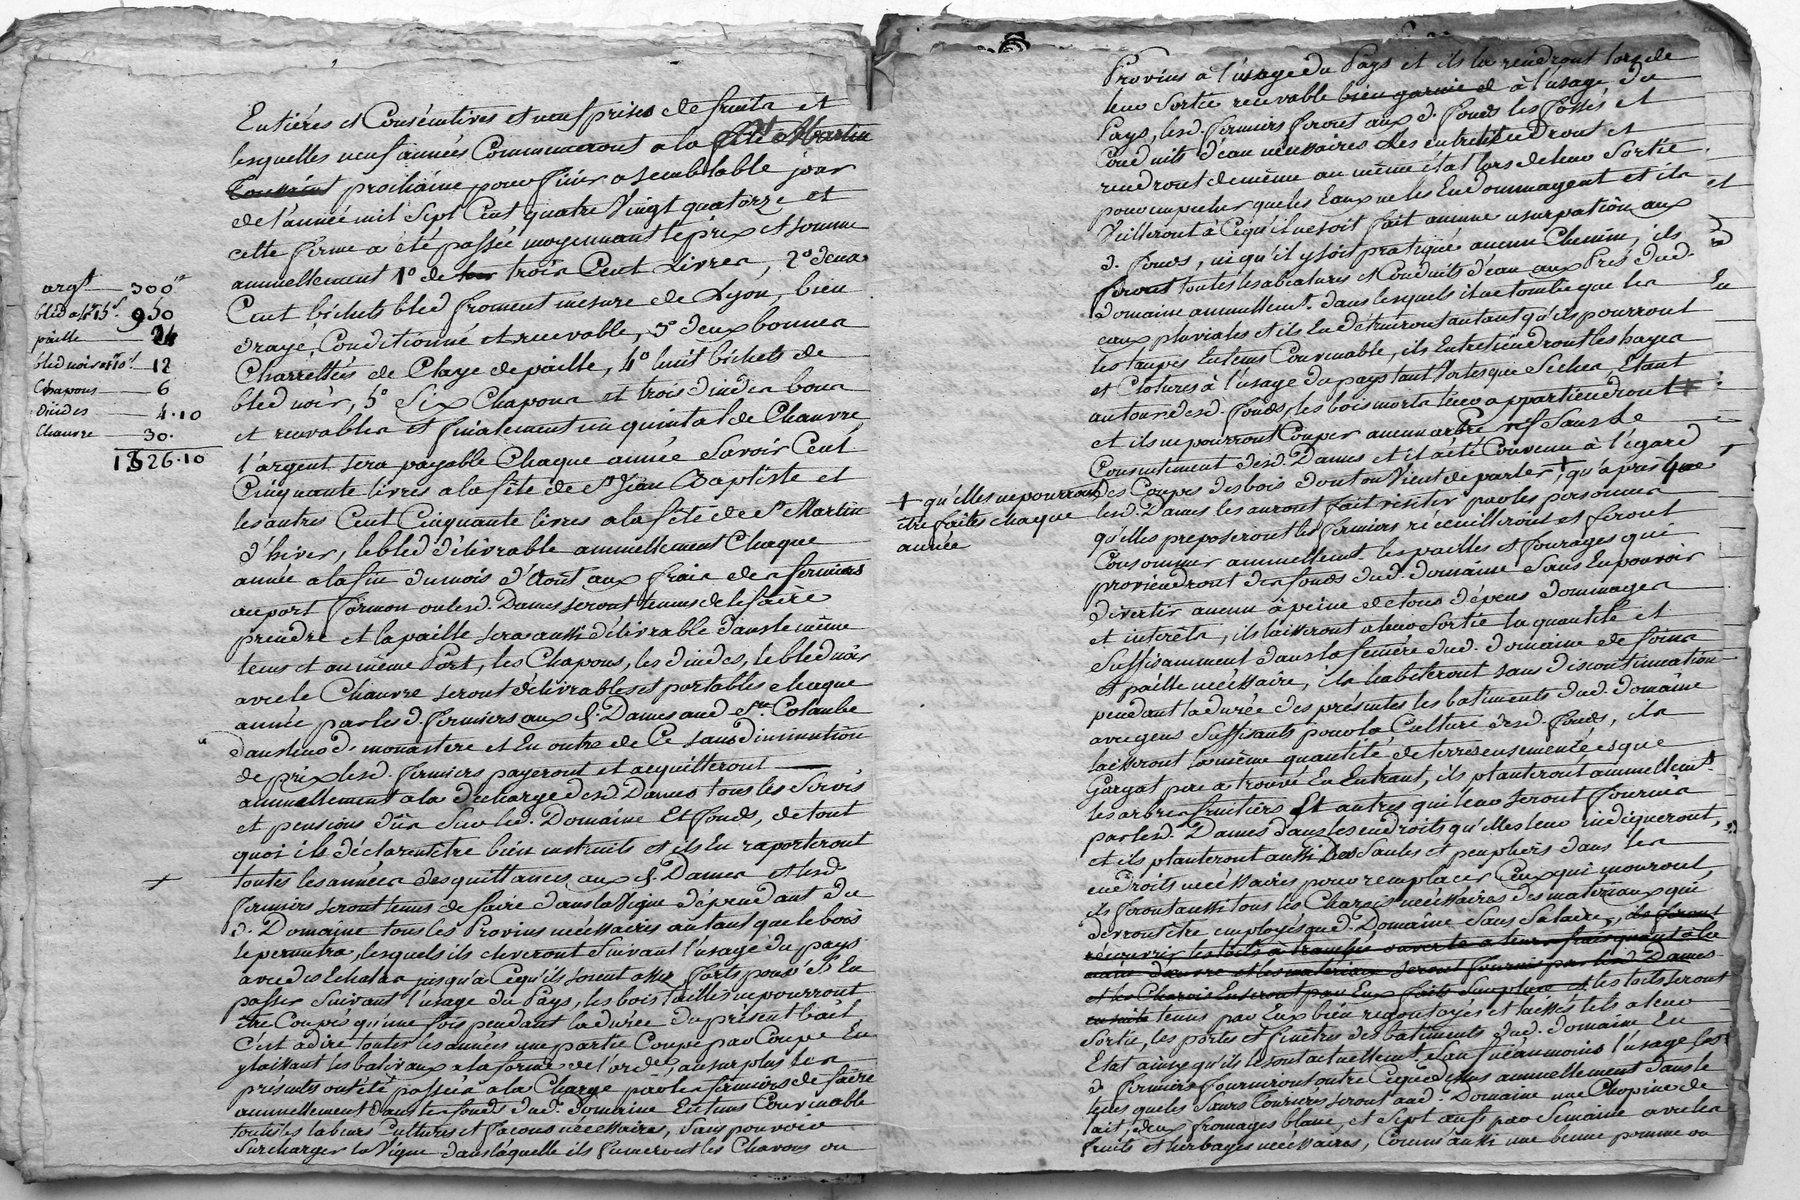 argt 300tt
bled a 4tt 15s 950
paille 24
bled noir a 1tt 10s 12
Chapons 6
dindes 4.10
Chanvre 30.
1326.10
Entiéres et Consécutives et neuf prises de fruits et
lesquelles neuf années Commenceront a la fête St Martin
Toussaint prochaine pour finir a semblable jour
de l'année mil Sept Cent quatre Vingt quatorze et
cette ferme a été passée moyennant le prix et somme
annuellement 1º de trois Cent Livres, 2º deux
Cent bichets bled froment mesure de Lyon, bien
drayé, Conditionné et recevable, 3º deux bonnes
Charrettées de Claye de paille, 4º huit bichets de
bled noir, 5º Six Chapons et trois dindes bons
et recevables et finalement un quintal de Chanvre,
l'argent sera payable Chaque année Savoir Cent
Cinquante livres a la fête de St Jean Baptiste et
les autres Cent Cinquante livres a la fête de St Martin
d'hiver, le bled délivrable annuellement Chaque
année a la fin du mois d'Août aux frais des fermiers
au port formon ou lesd. Dames seront tenues de le faire
prendre et la paille sera aussi délivrable dans le même
tems et au même Port, les Chapons, les dindes, le bled noir
avec le Chanvre seront délivrables et portables chaque
année par lesd. fermiers aux d. Dames aud. Ste Colombe
dans leurd. monastere et En outre de Ce sans diminution
de prix lesd. fermiers payeront et acquitteront
annuellement a la décharge desd. Dames tous les Servis
et pensions dûs Sur led. Domaine Et fonds, de tout
quoi ils déclarent être bien instruits et ils En raporteront
toutes les années des quittances aux d. Dames et lesd.
fermiers seront tenus de faire dans la Vigne dépendant du
d. Domaine tous les Provins nécéssaires autant que le bois
le permettra, lesquels ils cleveront Suivant l'usage du pays
avec des Echalas jusqu'à Ceqû'ils soient assez forts pour s'En
passer Suivant l'usage du Pays, les bois taillés ne pourront
être Coupés qu'une fois pendant la durée du présent bail,
C'est a dire toutes les années une partie Coupe par Coupe En
y laissant les balivaux a la forme de l'ordce, au surplus les
présentes ont été passées a la Charge par les fermiers de faire
annuellement dans les fonds dud. domaine En tems Convenable
toutes les labeurs Cultures et façons nécessaires, sans pouvoir
Surcharger la Vigne dans laquelle ils fumeront les Chavons ou
Provins à l'usage du Pays et ils la rendront lors de
leur Sortie recevable bien garnie et à l'usage du
Pays, lesd. fermiers feront aux d. fonds les fossés et
Conduits d'eau nécessaires Les entretiendront et
rendront de même au même état lors de leur Sortie
pour empecher que les Eaux ne les Endommagent et ils
Veilleront à Cequ'il ne soit fait aucune usurpation aux
d. fonds, ni qu'il y soit pratiqué aucun Chemin, ils
feront toutes les abeatures et Conduits d'eau aux Prés dud.
domaine annuellemt. dans lesquels il ne tombe que les
eaux pluviales et ils En détruiront autant qu'ils pourront
les taupes En tems Convenable, ils Entretiendront les hayes
et Clotures à l'usage du pays tant Vertes que Seches, Etant
autour desd. fonds, les bois morts leur appartiendront
et ils ne pourront Couper aucun arbre vif Sans le
Consentement desd. Dames et il a été Convenu à l'égard
des Coupes des bois dont on Vient de parler + qu'après que
lesd. Dames les auront fait visiter par les personnes
+ qu'elles ne pourront
être faites chaque
année
qu'elles preposeront les fermiers récueilleront et feront
Consommer annuellement les pailles et fourages qui
proviendront des fonds dud. domaine Sans En pouvoir
divertir aucun à peine de tous dépens dommages
et intérêts, ils laisseront a leur Sortie la quantité et
Suffisamment dans la feniére dud. domaine de foins
et paille nécéssaire, ils habiteront sans discontinuation
pendant la durée des présentes les batiments dud. domaine
avec gens Suffisants pour la Culture desd. fonds, ils
laisseront la même quantité de terres ensemencées que
Gargat pere a trouvé En Entrant, ils planteront annuellemt
les arbres fruitiers Et autres qui leur seront fournis
par lesd. Dames dans les endroits qu'elles leur indiqueront,
et ils planteront aussi des Saules et peupliers dans les
endroits nécéssaires pour remplacer Ceux qui mourront
ils feront aussi tous les Charois nécéssaires des materiaux qui
devront être employés aud. Domaine Sans Salaire, ils feront
récouvrir les toits à tranche ouverte a leurs frais quant a la
main d'œuvre et les materiaux seront fournis par lesd. Dames
et les Charois En seront par Eux faits et les toits seront
ensuite tenus par Eux bien regoutoyés et laissés tels a leur
Sortie, les portes et fenêtres des batiments dud. domaine En
Etat ainsy qu'ils le sont actuellemt. Sauf néanmoins l'usage les
d. fermiers fourniront outre Ceque dessus annuellement dans le
tems que les Sœurs Tourieres seront aud. Domaine une Chopine de
lait, deux fromages blanc, et Sept œufs par Semaine avec les
fruits et herbages nécéssaires, Comme aussi une benne pomme ou